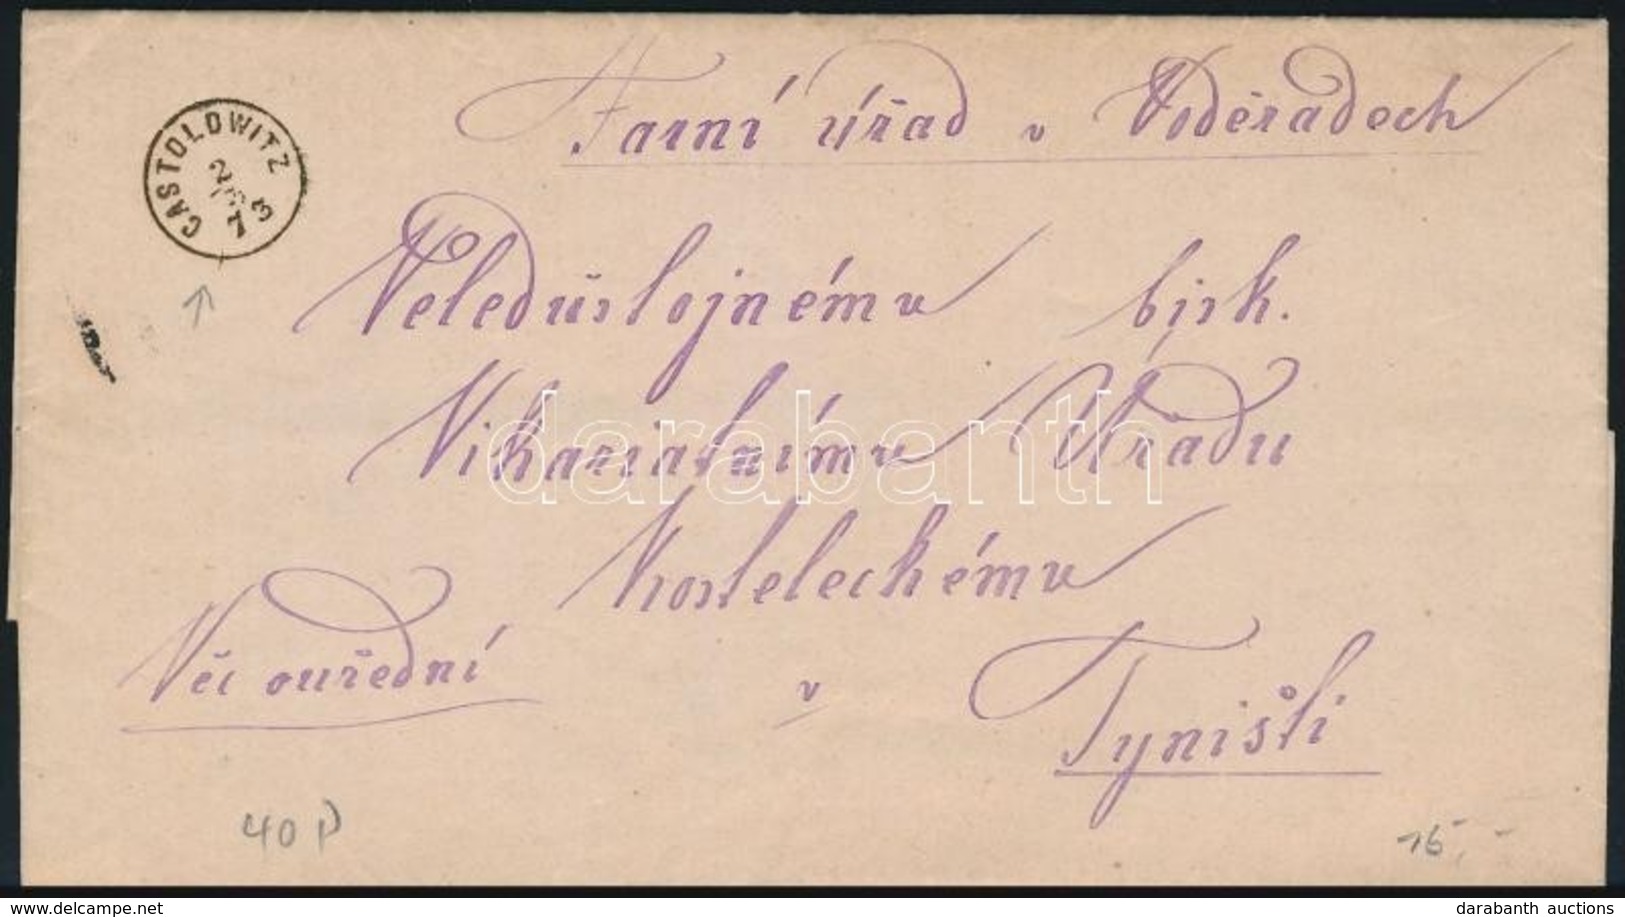 Farní úřad v Voděradech
CASTOLOWITZ
2
73
Veledůstojnému bisk.
Vikariatnímu Úřadu
Kosteleckému
Věc ouřední
v
Tyništi
40 P
15,-
darabanth
www.delcampe.net
darabanth auctions